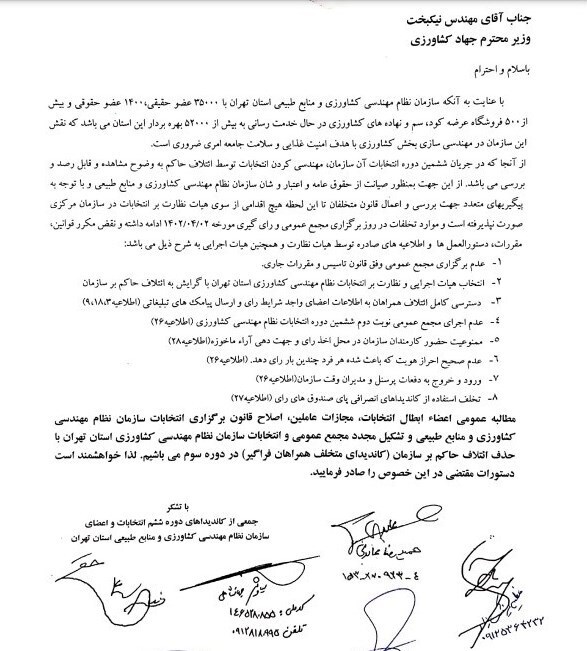 جناب آقای مهندس نیکبخت
وزیر محترم جهاد کشاورزی
باسلام و احترام
با عنایت به آنکه سازمان نظام مهندسی کشاورزی و منابع طبیعی استان تهران با ۳۵۰۰۰ عضو حقیقی،۱۴۰۰ عضو حقوقی و بیش
از۵۰۰ فروشگاه عرضه کود، سم و نهاده های کشاورزی در حال خدمت رسانی به بیش از ۵۲۰۰۰ بهره بردار این استان می باشد که نقش
این سازمان در مهندسی سازی بخش کشاورزی با هدف امنیت غذایی و سلامت جامعه امری ضروری است.
از آنجا که در جریان ششمین دوره انتخابات آن سازمان، مهندسی کردن انتخابات توسط ائتلاف حاکم به وضوح مشاهده و قابل رصد و
بررسی می باشد. از این جهت بمنظور صیانت از حقوق عامه و اعتبار و شان سازمان نظام مهندسی کشاورزی و منابع طبیعی و با توجه به
پیگیریهای متعدد جهت بررسی و اعمال قانون متخلفان تا این لحظه هیچ اقدامی از سوی هیات نظارت بر انتخابات در سازمان مرکزی
صورت نپذیرفته است و موارد تخلفات در روز برگزاری مجمع عمومی و رای گیری مورخه ۱۴۰۲/۰۴/۰۲ ادامه داشته و نقض مکرر قوانین،
مقررات، دستورالعمل ها و اطلاعیه های صادره توسط هیات نظارت و همچنین هیات اجرایی به شرح ذیل می باشد:
۱- عدم برگزاری مجمع عمومی وفق قانون تاسیس و مقررات جاری.
۲- انتخاب هیات اجرایی و نظارت بر انتخابات نظام مهندسی کشاورزی استان تهران با گرایش به ائتلاف حاکم بر سازمان
۳- دسترسی کامل ائتلاف همراهان به اطلاعات اعضای واجد شرایط رای و ارسال پیامک های تبلیغاتی (اطلاعیه۹،۱۸،۳)
۴- عدم اجرای مجمع عمومی نوبت دوم ششمین دوره انتخابات نظام مهندسی کشاورزی (اطلاعیه۲۶)
۵- ممنوعیت حضور کارمندان سازمان در محل اخذ رای و جهت دهی آراء ماخوزه(اطلاعیه۲۸)
۶- عدم صحیح احراز هویت که باعث شده هر فرد چندین بار رای دهد. (اطلاعیه۲۶)
۷- ورود و خروج به دفعات پرسنل و مدیران وقت سازمان(اطلاعیه۲۶)
۸- تخلف استفاده از کاندیداهای انصرافی پای صندوق های رای (اطلاعیه۲۷)
مطالبه عمومی اعضاء ابطال انتخابات، مجازات عاملین، اصلاح قانون برگزاری انتخابات سازمان نظام مهندسی
کشاورزی و منابع طبیعی و تشکیل مجدد مجمع عمومی و انتخابات سازمان نظام مهندسی کشاورزی استان تهران با
حذف ائتلاف حاکم بر سازمان (کاندیدای متخلف همراهان فراگیر) در دوره سوم می باشیم. لذا خواهشمند است
دستورات مقتضی در این خصوص را صادر فرمایید.
با تشکر
جمعی از کاندیداهای دوره ششم انتخابات و اعضای
سازمان نظام مهندسی کشاورزی و منابع طبیعی استان تهران
حمیدرضا
کد ملی:
تلفن